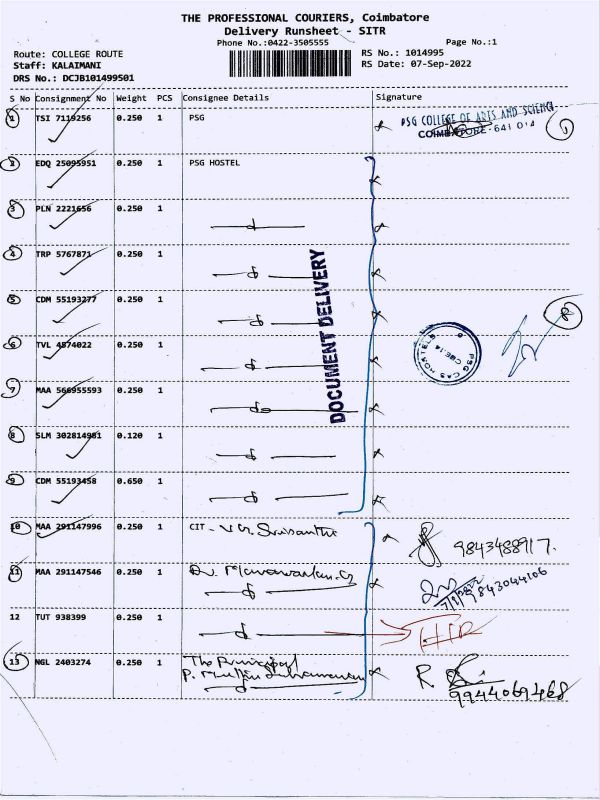 THE PROFESSIONAL COURIERS, Coimbatore
Delivery Runsheet - SITR
Phone No.:0422-3505555 Page No.:1
Route: COLLEGE ROUTE RS No.: 1014995
Staff: KALAIMANI RS Date: 07-Sep-2022
DRS No.: DCJB101499501
S No Consignment No Weight PCS Consignee Details Signature
1 TSI 7119256 0.250 1 PSG
PSG COLLEGE OF ARTS AND SCIENCE
COIMBATORE-641 014
2 EDQ 25095951 0.250 1 PSG HOSTEL
3 PLN 2221656 0.250 1
4 TRP 5767871 0.250 1
5 CDM 55193277 0.250 1
6 TVL 4574022 0.250 1
7 MAA 566955593 0.250 1
8 SLM 302814981 0.120 1
9 CDM 55193458 0.650 1
DOCUMENT DELIVERY
PSG CAS HOSTELS
CBE-14
8
10 MAA 291147996 0.250 1 CIT - 9843488917.
11 MAA 291147546 0.250 1 9843044106
12 TUT 938399 0.250 1
13 NGL 2403274 0.250 1 The Principal
P. R.
9944069468